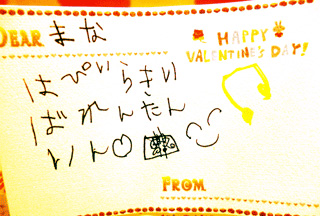 DEAR まな
HAPPY
VALENTINE'S DAY!
はぴいらきい
ばれんたん
いん♡
FROM